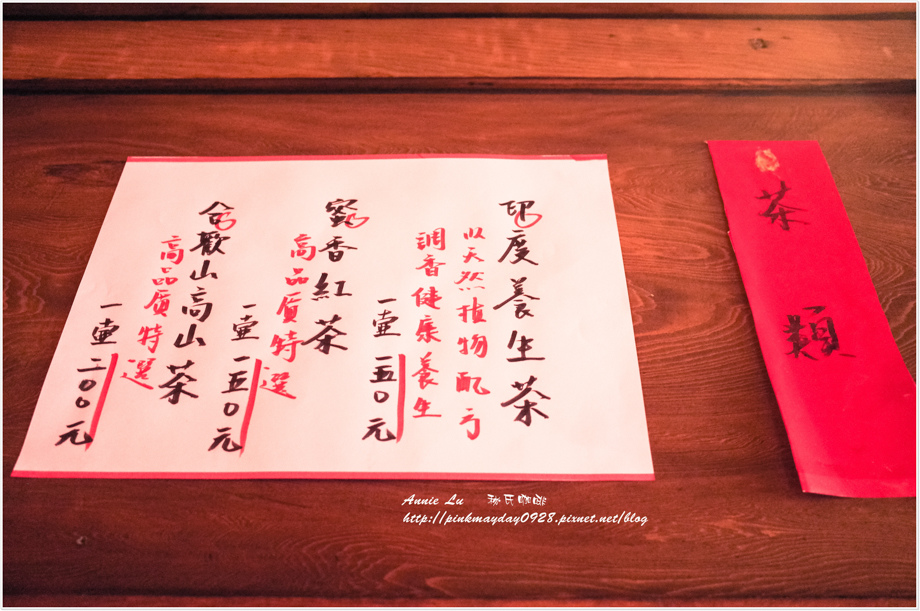 茶類
印度養生茶
以天然植物配方
調香健康養生
一壺一五〇元
蜜香紅茶
高品質特選
一壺一五〇元
合歡山高山茶
高品質特選
一壺二〇〇元
Annie Lu
http://pinkmayday0928.pixnet.net/blog